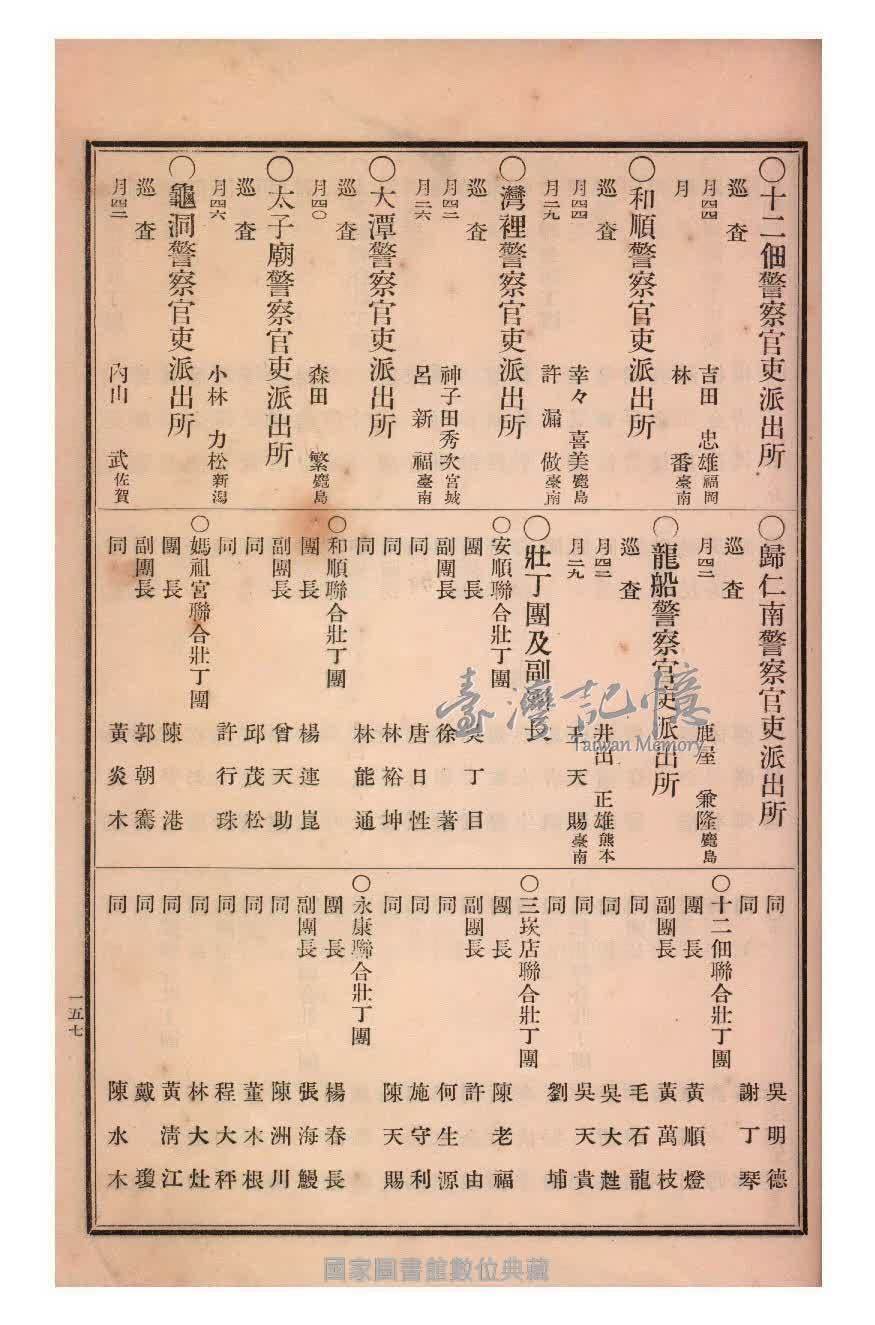 〇十二佃警察官吏派出所
巡査
月四四 吉田 忠雄 福岡
月 林 番 臺南
〇和順警察官吏派出所
巡査
月四四 幸々 喜美 鹿島
月二九 許 漏 做 臺南
〇灣裡警察官吏派出所
巡査
月四二 神子田秀次 宮城
月二六 呂 新 福 臺南
〇大潭警察官吏派出所
巡査
月四〇 森田 繁 鹿島
〇太子廟警察官吏派出所
巡査
月四六 小林 力松 新潟
〇龜洞警察官吏派出所
巡査
月四二 內山 武 佐賀
〇歸仁南警察官吏派出所
巡査
月四二 鹿屋 兼隆 鹿島
〇龍船警察官吏派出所
巡査
月四二 井出 正雄 熊本
月二九 王 天 賜 臺南
〇壯丁團及副團長
〇安順聯合壯丁團
團長 吳丁目
副團長 徐著
同 唐日性
同 林裕坤
同 林能通
〇和順聯合壯丁團
團長 楊連崑
副團長 曾天助
同 邱茂松
同 許行珠
〇媽祖宮聯合壯丁團
團長 陳港
副團長 郭朝騫
同 黃炎木
同 吳明德
同 謝丁琴
〇十二佃聯合壯丁團
團長 黃順燈
副團長 黃萬枝
同 毛石龍
同 吳大甦
同 吳天貴
同 劉埔
〇三崁店聯合壯丁團
團長 陳老福
副團長 許由
同 何生源
同 施守利
同 陳天賜
〇永康聯合壯丁團
團長 楊春長
副團長 張海鰻
同 陳洲川
同 董木根
同 程大秤
同 林大灶
同 黃淸江
同 戴瓊
同 陳水木
一五七
臺灣記憶
Taiwan Memory
國家圖書館數位典藏